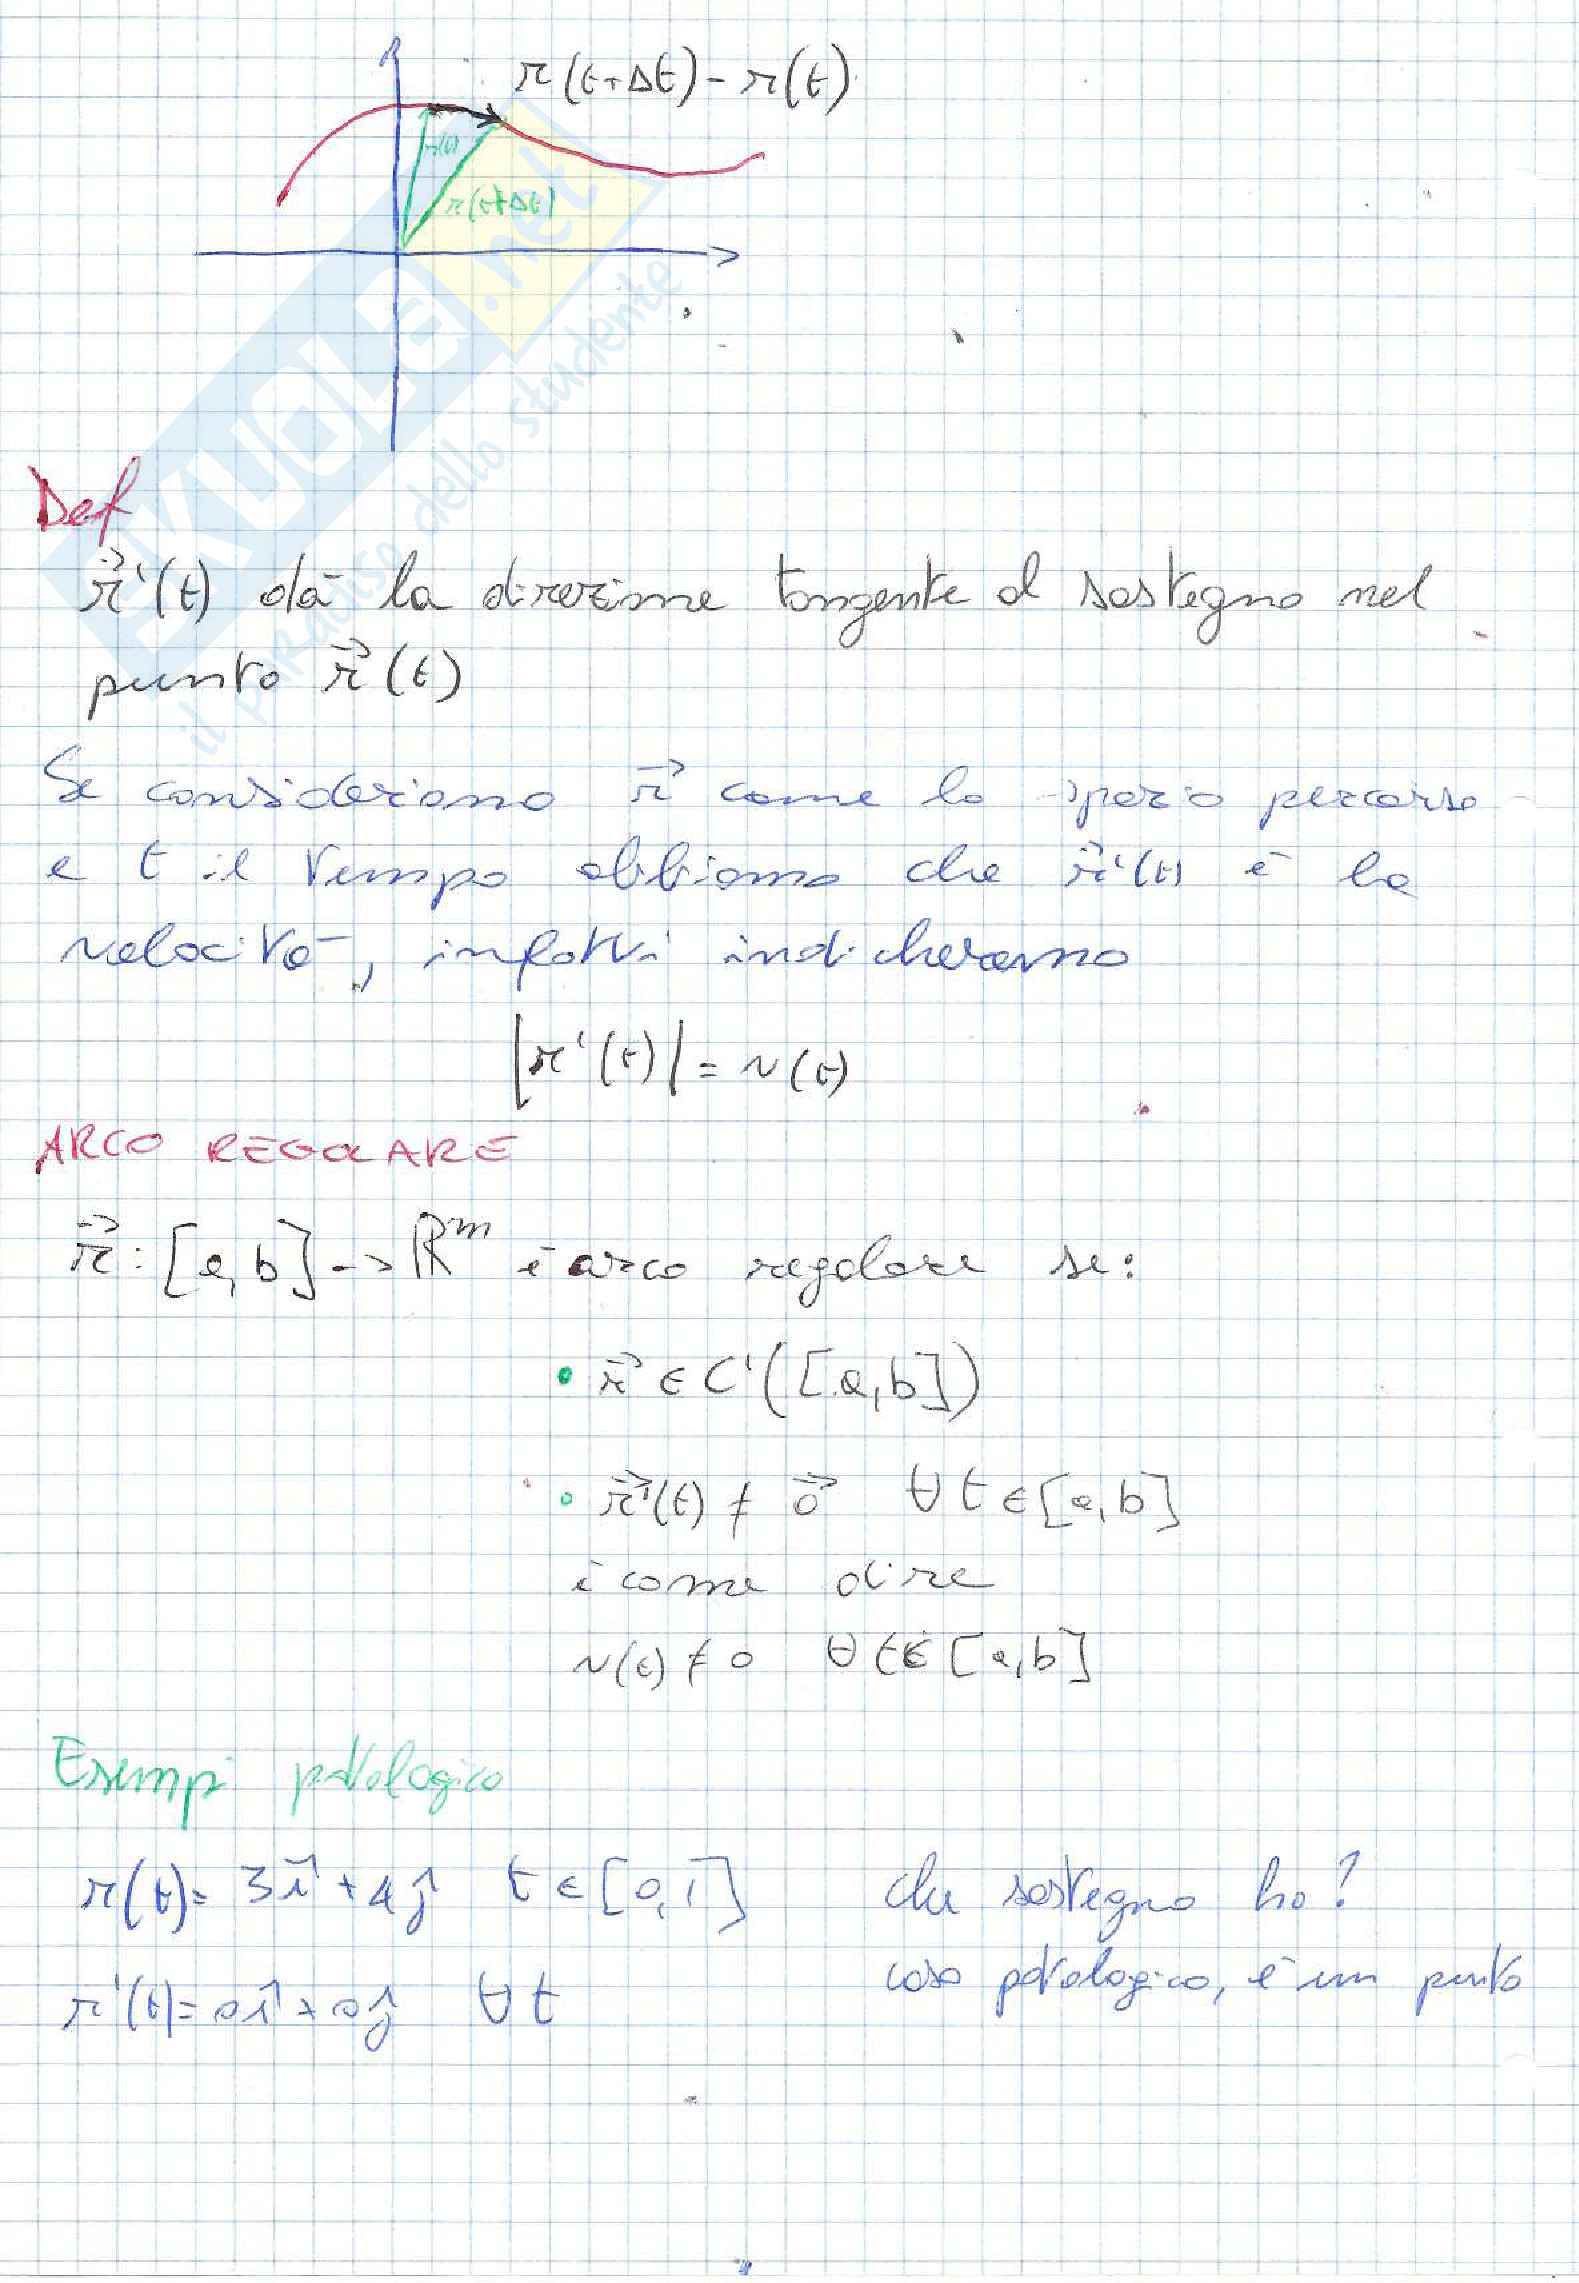 r(t+Δt) - r(t)
r(t)
r(t+Δt)
SKUOLA.net
il paradiso dello studente
Def
r⃗'(t) dà la direzione tangente al sostegno nel
punto r⃗(t)
Se consideriamo r⃗ come lo spazio percorso
e t il tempo abbiamo che r⃗'(t) è la
velocità, infatti indicheremo
|r'(t)| = v(t)
ARCO REGOLARE
r⃗: [a,b] -> ℝᵐ è arco regolare se:
• r⃗ ∈ C¹([a,b])
• r⃗'(t) ≠ 0⃗ ∀ t ∈ [a,b]
è come dire
v(t) ≠ 0 ∀ t ∈ [a,b]
Esempi patologico
r(t) = 3i⃗ + 4j⃗ t ∈ [0,1] che sostegno ho?
caso patologico, è un punto
r'(t) = 0i⃗ + 0j⃗ ∀ t